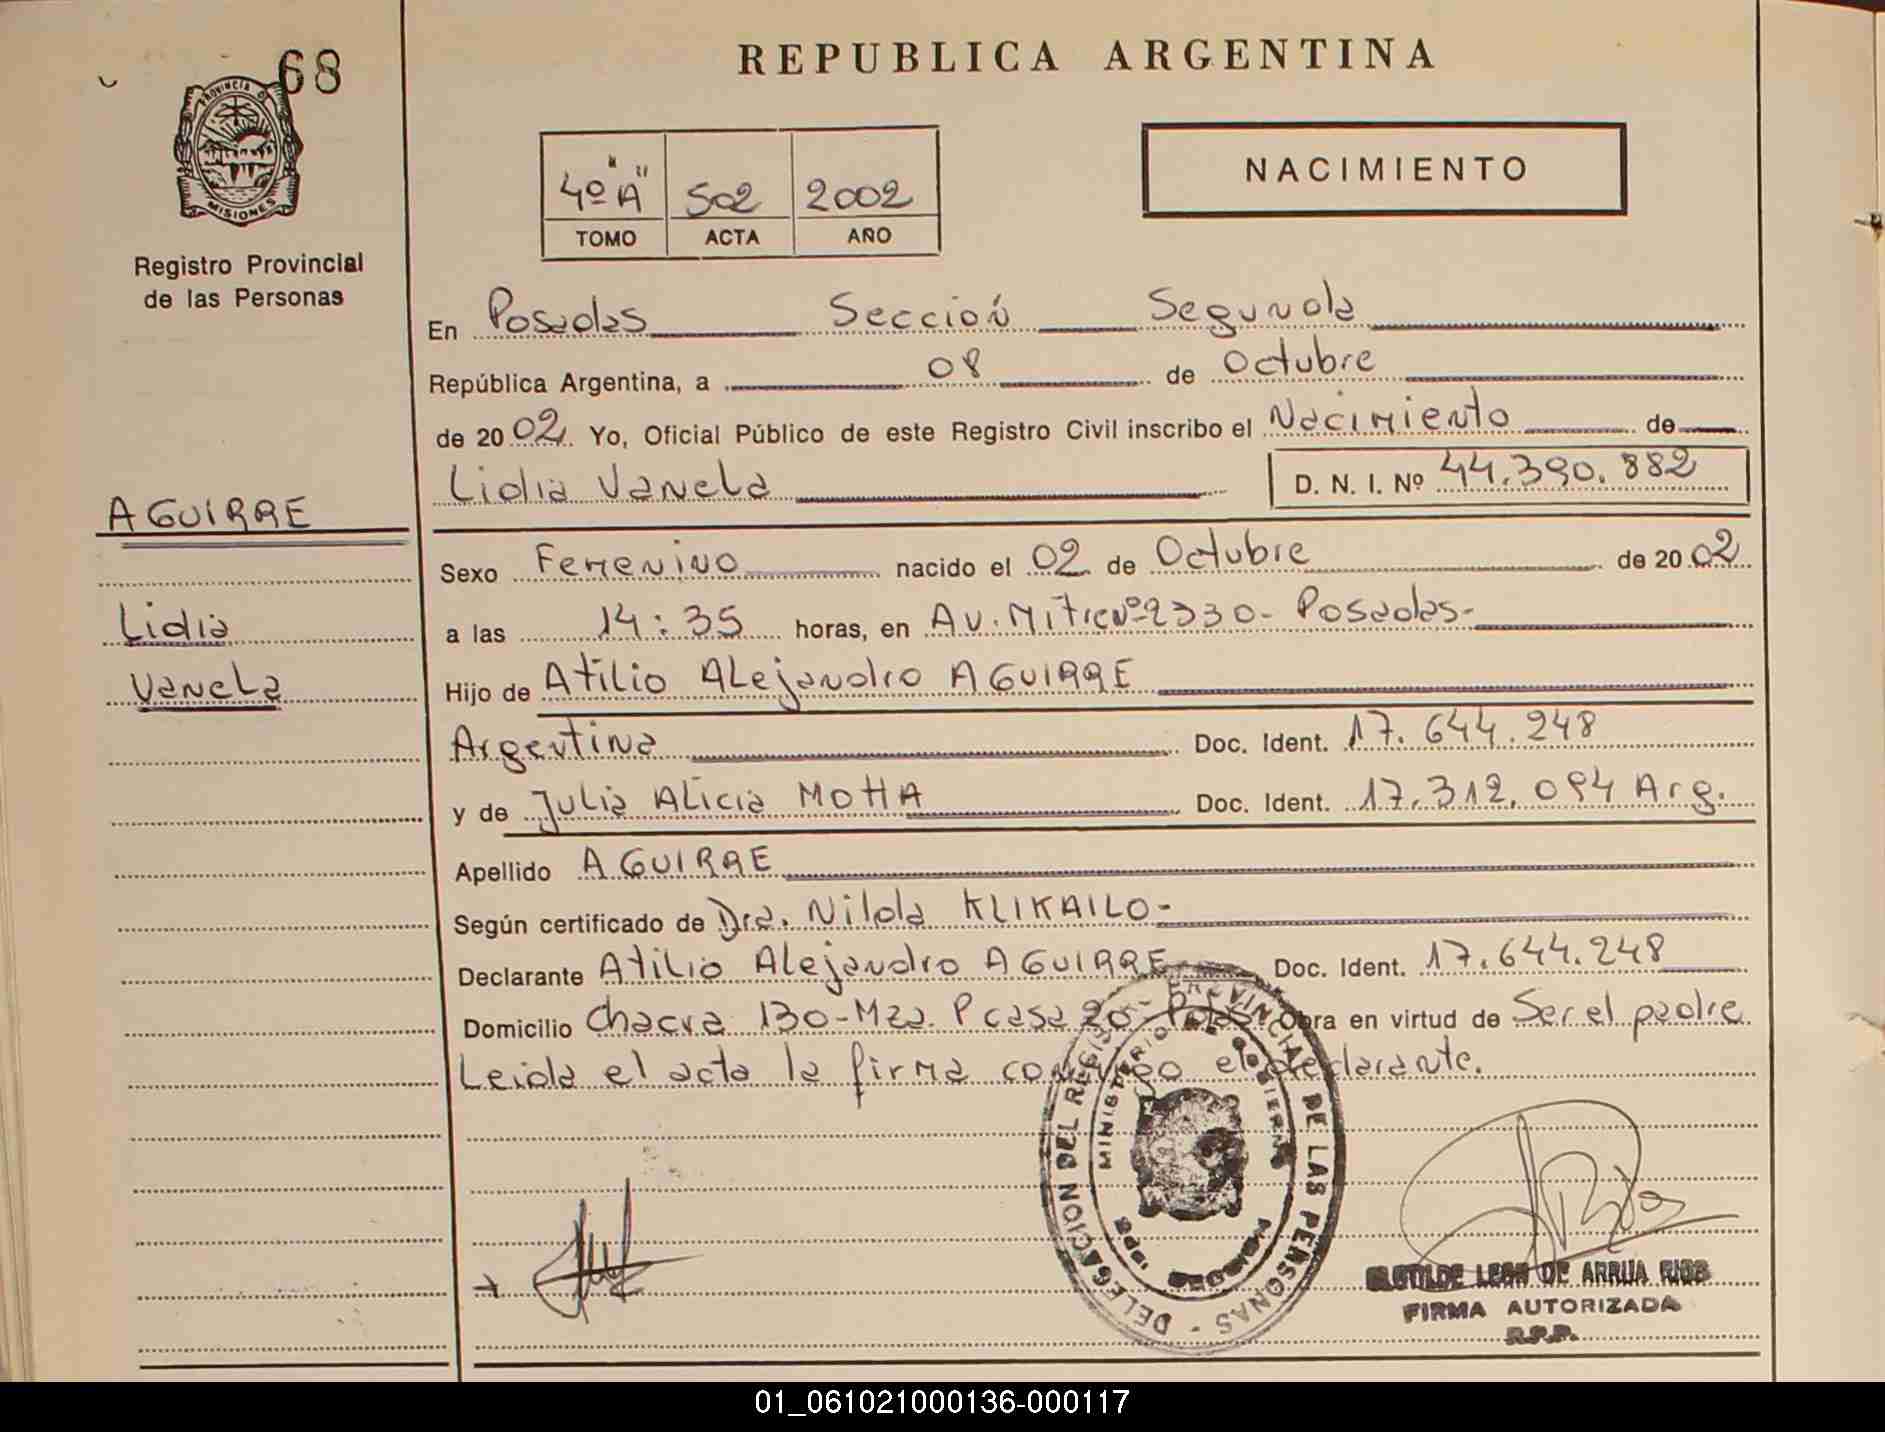 68
PROVINCIA D
MISIONES
Registro Provincial
de las Personas
REPUBLICA ARGENTINA
4º "A" 502 2002
TOMO ACTA AÑO
NACIMIENTO
En Posadas Sección Segunda
República Argentina, a 08 de Octubre
de 2002. Yo, Oficial Público de este Registro Civil inscribo el Nacimiento de
Lidia Vanela D. N. I. Nº 44.390.882
AGUIRRE
Lidia
Vanela
Sexo Femenino nacido el 02 de Octubre de 2002
a las 14:35 horas, en Av. Mitre Nº 2330- Posadas-
Hijo de Atilio Alejandro AGUIRRE
Argentina Doc. Ident. 17.644.248
y de Julia Alicia MOttA Doc. Ident. 17.312.094 Arg.
Apellido AGUIRRE
Según certificado de Dra. Nilda KLIKAILO-
Declarante Atilio Alejandro AGUIRRE Doc. Ident. 17.644.248
Domicilio Chacra 130-Mza. P casa 20- Pdas. Obra en virtud de Ser el padre
Leida el acta la firma conmigo el declarante.
DELEGACION DEL REGISTRO PROVINCIAL DE LAS PERSONAS -
MINISTERIO DE GOBIERNO
MISIONES
CLOTILDE LEON DE ARRUA RIOS
FIRMA AUTORIZADA
R.P.P.
01_061021000136-000117